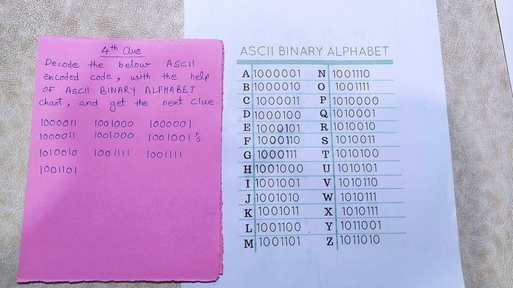 4th Clue
Decode the below ASCII
encoded code, with the help
OF ASCII BINARY ALPHABET
chart, and get the next clue
1000011 1001000 1000001
1000011 1001000 1001001's
1010010 1001111 1001111
1001101
ASCII BINARY ALPHABET
A 1000001 N 1001110
B 1000010 O 1001111
C 1000011 P 1010000
D 1000100 Q 1010001
E 1000101 R 1010010
F 1000110 S 1010011
G 1000111 T 1010100
H 1001000 U 1010101
I 1001001 V 1010110
J 1001010 W 1010111
K 1001011 X 1010111
L 1001100 Y 1011001
M 1001101 Z 1011010